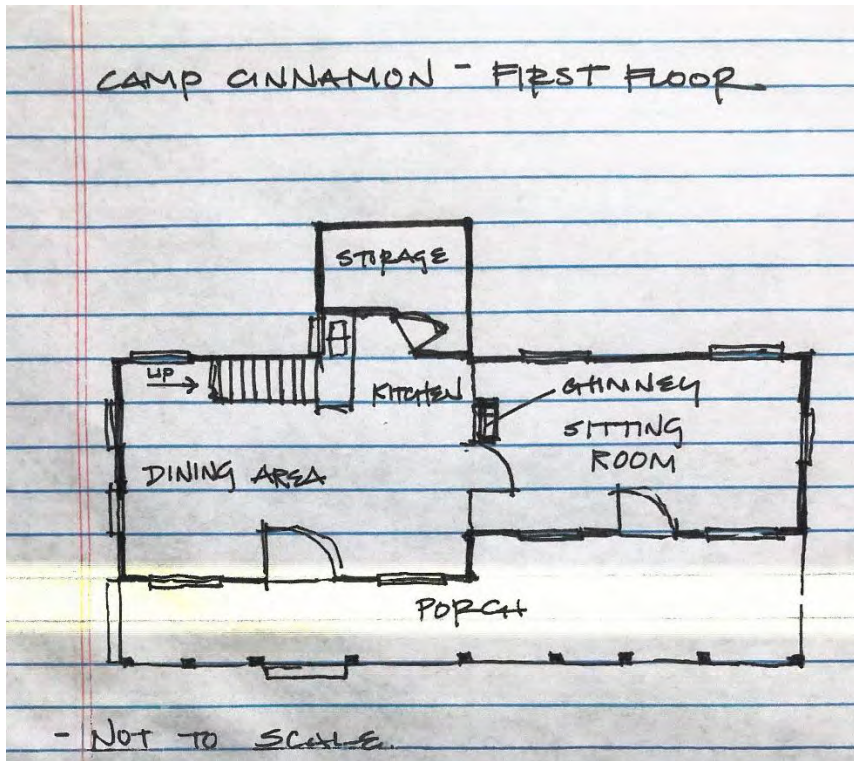 CAMP CINNAMON - FIRST FLOOR
STORAGE
UP
KITCHEN
CHIMNEY
SITTING
ROOM
DINING AREA
PORCH
- NOT TO SCALE.